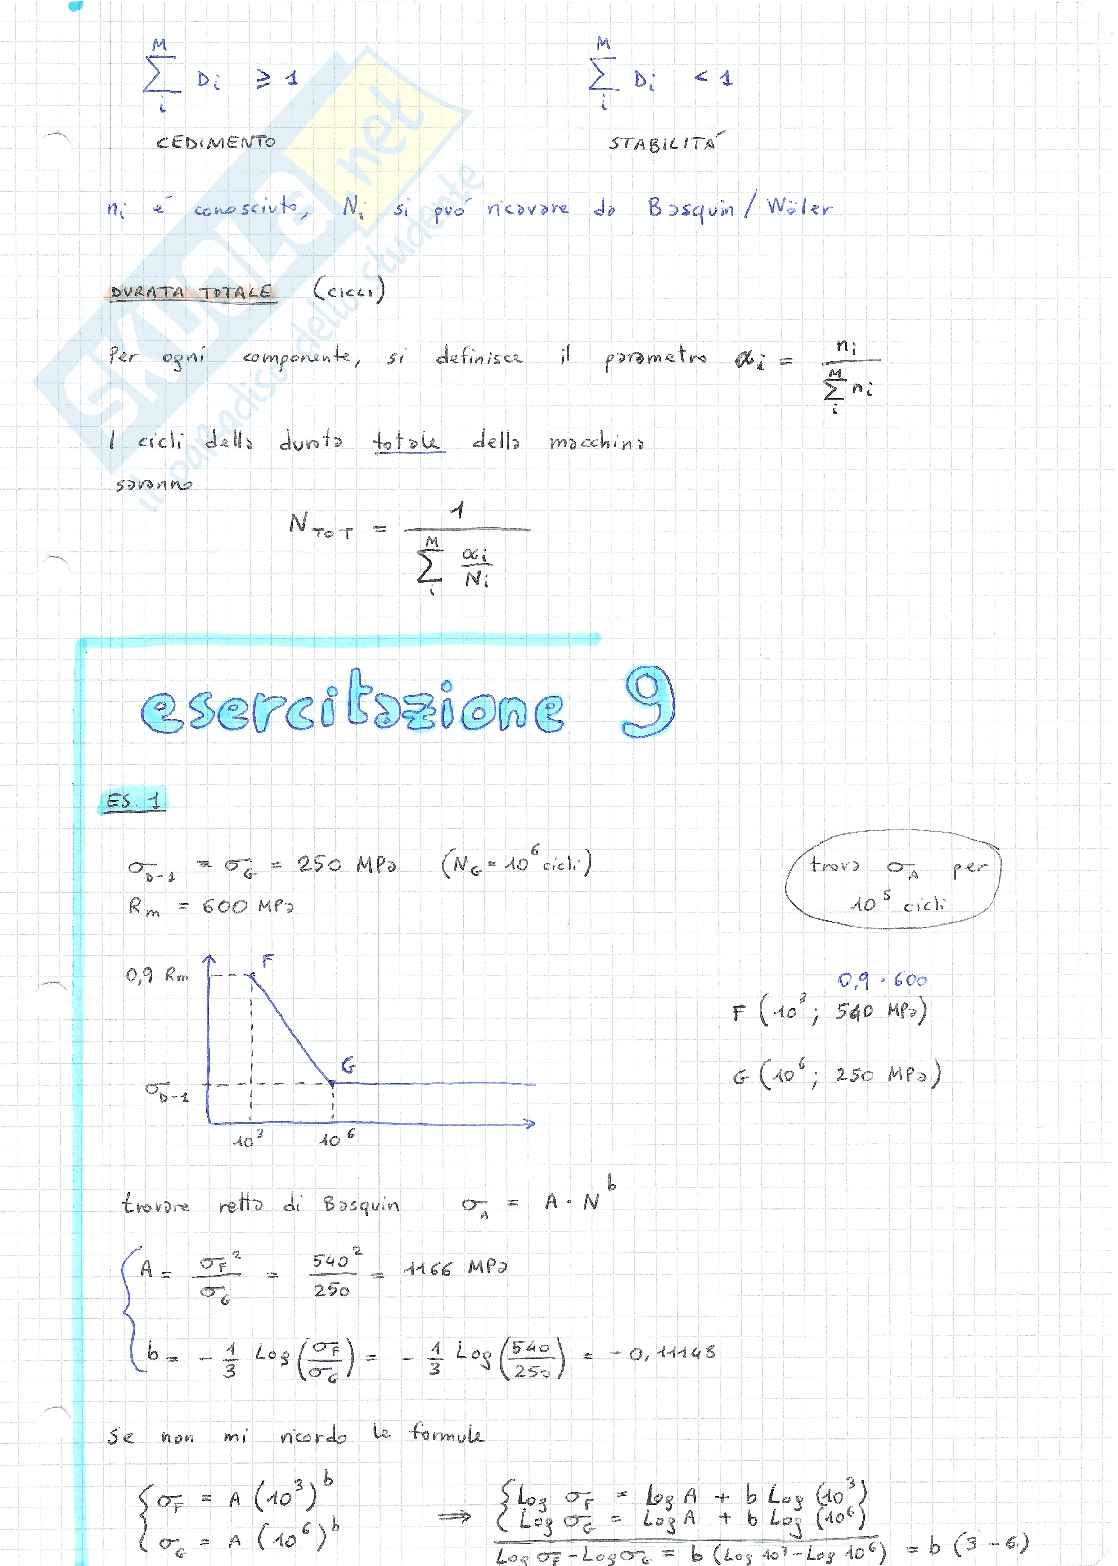 M M
∑ Di ⩾ 1 ∑ Di < 1
i i
CEDIMENTO STABILITÁ
ni é conosciuto, Ni si puó ricavare da Basquin / Wöler
DURATA TOTALE (CICLI)
Per ogni componente, si definisce il parametro αi = ni / ∑_i^M ni
I cicli della durata totale della macchina
saranno
N_TOT = 1 / ∑_i^M αi/Ni
esercitazione 9
ES. 1
σ_D-1 = σ_G = 250 MPa (N_G = 10^6 cicli)
trova σ_A per
10^5 cicli
Rm = 600 MPa
0,9 Rm F
0,9 · 600
F (10^3 ; 540 MPa)
G
G (10^6 ; 250 MPa)
σ_D-1
10^3 10^6
trovare retta di Basquin σ_A = A · N^b
A = σ_F^2 / σ_G = 540^2 / 250 = 1166 MPa
b = - 1/3 Log (σ_F / σ_G) = - 1/3 Log (540 / 250) = - 0,11148
Se non mi ricordo le formule
{ σ_F = A (10^3)^b ⟹ { Log σ_F = Log A + b Log (10^3)
σ_G = A (10^6)^b Log σ_G = Log A + b Log (10^6)
Log σ_F - Log σ_G = b (Log 10^3 - Log 10^6) = b (3 - 6)
SKUOLA.net
il paradiso dello studente